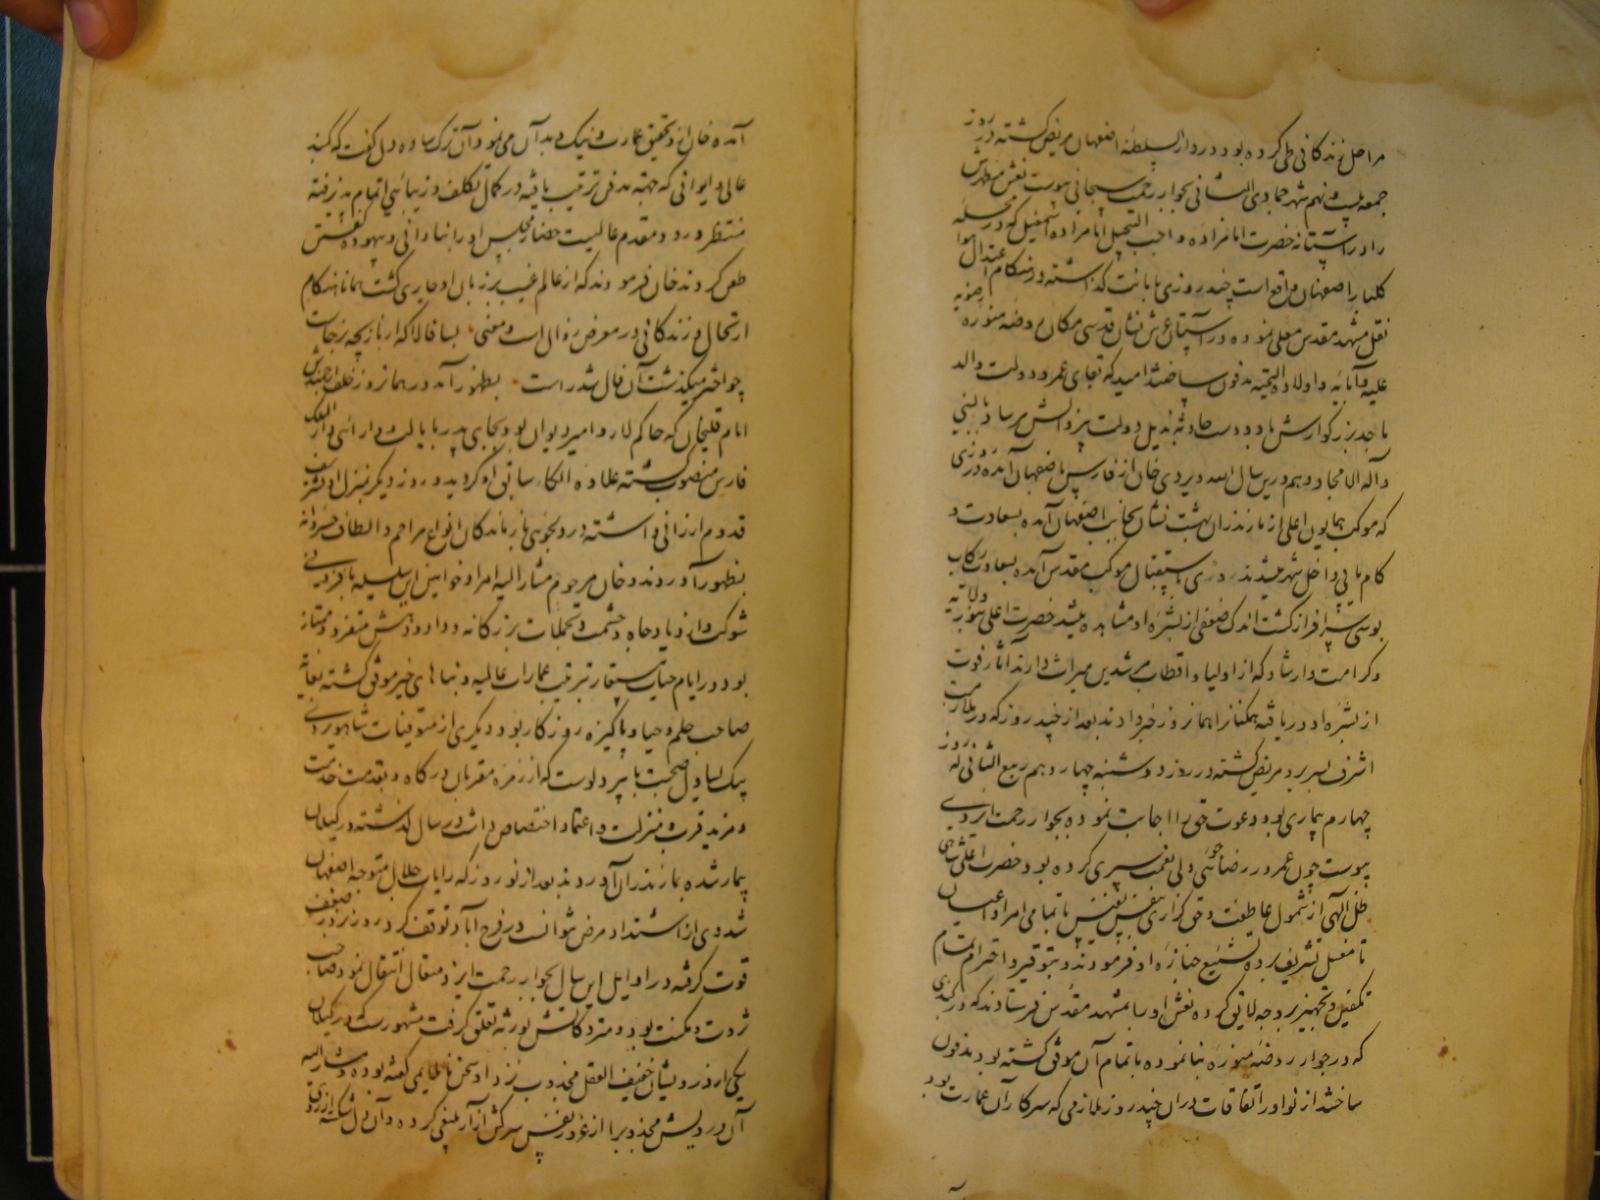 مراحل زندگانی طی کرده بود در دار السلطنه اصفهان مریض گشته در روز
جمعه بیست و نهم شهر جمادی الثانی بجوار رحمت سبحانی پیوست نعش مطهرش
را در آستانه حضرت امامزاده واجب التبجیل امامزاده اسمعیل که در محله
گلبار اصفهان واقع است چند روزی بامانت گذاشته در هنگام اعتدال هوا
نقل مشهد مقدس معلی نموده در آستان عرش نشان قدسی مکان روضه منوره رضویه
علیه و آبایه و اولاده التحیه مدفون ساختند امید که بجای عمر و دولت والد
ماجد بزرگوارش باد و دست حادثه بذیل دولت بیزوالش مرساد بالنبی
و آله الامجاد و هم درین سال الله ویردی خان از فارس باصفهان آمده در روزی
که موکب همایون اعلی از مازندران بهشت نشان بجانب اصفهان آمده بسعادت و
کامیابی داخل شهر میشدند روزی باستقبال موکب مقدس آمده بسعادت رکاب
بوسی سرافراز گشت اندک ضعفی از بشره او مشاهده میشد حضرت اعلی بنور ولایه
و کرامت و ارشاد که از اولیاء و اقطاب مرشدین میراث دارند آثار فوت
از بشره او دریافته همگنانرا همانروز خبر دادند بعد از چند روز که در ملازمت
اشرف بسر برد مریض گشته در روز دوشنبه چهاردهم ربیع الثانی که روز
چهارم بیماری بود دعوت حق را اجابت نموده بجوار رحمت ایزدی
پیوست چون عمر در رضاجوئی ولی نعمت سپری کرده بود حضرت اعلی شاهی
ظل الهی از شمول عاطفت و حق گزاری بنفس نفیس با تمامی امرا و اعیان
تا مغسل تشریف برده تشییع جنازه او فرمودند و بتوقیر و احترام تمام
تکفین و تجهیز بر وجه لایق کرده نعش او را بمشهد مقدس فرستادند که در گنبدی
که در جوار روضه منوره بنا نموده باتمام آن موفق گشته بود مدفون
ساختند از نوادر اتفاقات در آن چند روز ملازمی که سرکار آن عمارت بود
آمده خان ازو تحقیق عمارت و نیک و بد آن می نمود و آن ترک ساده دل گفت که گنبد
عالی و ایوانی که جهته مدفن ترتیب یافته در کمال تکلف و زیبائی اتمام پذیرفته
منتظر ورود مقدم عالیست حضار مجلس او را بنادانی و بیهوده گفتن
طعن کردند خان فرمودند که از عالم غیب بر زبان او جاری گشت همانا هنگام
ارتحال و زندگانی در معرض زوال است و معنی بسا فالا که از بازیچه برخاست
چو اختر میگذشت آن فال شد راست بظهور آمد در همانروز خلف ارجمندش
امام قلیخان که حاکم لار و امیر دیوان بود بجای پدر بایالت و دارائی
فارس منصوب گشته علاوه الکاء سابق او گردید و روز دیگر بمنزل او تشریف
قدوم ارزانی داشته در دلجوئی بازماندگان انواع مراحم و الطاف خسروانه
بظهور آوردند و خان مرحوم مشار الیه امرا و خوانین این سلسله بافزونی
شوکت و ازدیاد جاه و حشمت و تجملات بزرگانه و داد و دهش منفرد و ممتاز
بود در ایام حیات مستعار بترتیب عمارات عالیه و بناهای خیر موفق گشته بغایة
صاحب حلم و حیا و پاکیزه روزگار بود دیگری از متوفیات شاهویردی
بیک یساول صحبت پیر دولت که از زمره مقربان درگاه و بقدمت خدمت
و مزید قرب و منزلت و اعتماد اختصاص داشت در سال گذشته در گیلان
بیمار شده بمازندران آوردند بعد از نوروز که رایات جلال متوجه اصفهان
شد وی از اشتداد مرض نتوانست در فرح آباد توقف کرد روز بروز ضعف
قوت گرفته در اوایل این سال بجوار رحمت ایزد متعال انتقال نمود صاحب
ثروت و مکنت بود و متروکاتش بورثه تعلق گرفت مشهورست که در گیلان
یکی از درویشان خفیف العقل مجذوب نزد او سخن ناملایمی گفته بود مشار الیه
آن درویش مجذوب را از غرور نفس سرکش آزار بلیغی کرده و آن دل شکسته